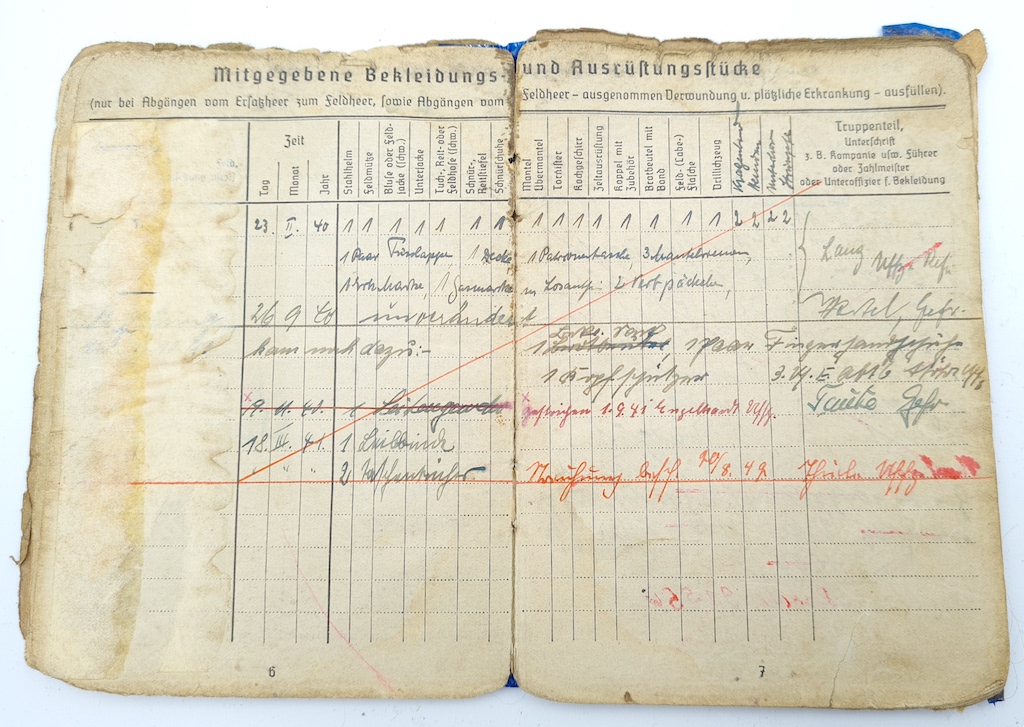 Mitgegebene Bekleidungs- und Ausrüstungsstücke
(nur bei Abgängen vom Ersatzheer zum Feldheer, sowie Abgängen vom Feldheer – ausgenommen Verwundung u. plötzliche Erkrankung – ausfüllen).
Zeit
Tag
Monat
Jahr
Stahlhelm
Feldmütze
Bluse oder Feldjacke (schw.)
Unterjacke
Tuch-, Reit- oder Feldhose (schw.)
Schnür-, Reitstiefel
Schnürschuhe
Mantel
Übermantel
Tornister
Kochgeschirr
Zeltausrüstung
Koppel mit Zubehör
Brotbeutel mit Band
Feld-(Labe-) flasche
Drillichzeug
Kragenbind
Hemden
Unterhosen
Truppenteil,
Unterschrift
z. B. Kompanie usw. Führer
oder Zahlmeister
oder Unteroffizier f. Bekleidung
23. II. 40 1 1 1 1 1 1 1 1 1 1 1 1 1 1 1 2 2 2 2
1 Paar Fußlappen 1 Decke 1 Patronentasche 3 Mantelriemen,
Lang Uffz.
1 Erk. Marke, 1 Gasmaske m. Losantf: 2 Verb. päckchen,
26 9 40 unverändert
Gefr.
kam noch dazu:-
1 Paar Fingerhandschuhe
1 Kopfschützer
9. 11. 40. 1 Seitengewehr
gestrichen 1.9.41 Engelhardt Uffz.
Gefr
18. III. 41. 1 Leibbinde
" " " 2 Taschentücher
Streichung besch. 20/8. 42. Uffz
6
7